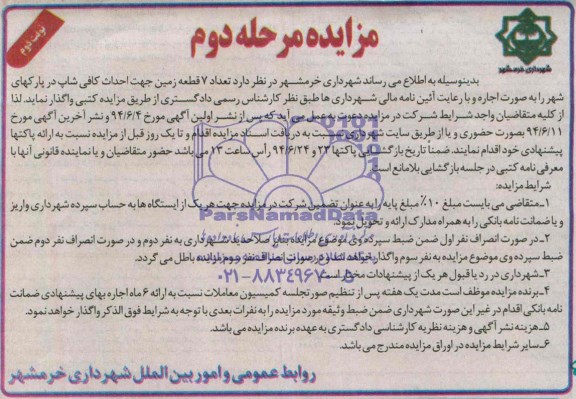 مزایده مرحله دوم
نوبت دوم
شهرداری خرمشهر
بدینوسیله به اطلاع می رساند شهرداری خرمشهر در نظر دارد تعداد ۷ قطعه زمین جهت احداث کافی شاپ در پارکهای
شهر را به صورت اجاره و با رعایت آئین نامه مالی شهرداری ها طبق نظر کارشناس رسمی دادگستری از طریق مزایده کتبی واگذار نماید. لذا
از کلیه متقاضیان واجد شرایط شرکت در مزایده دعوت بعمل می آید که پس از نشر اولین آگهی مورخ ۹۴/۶/۴ و نشر آخرین آگهی مورخ
۹۴/۶/۱۱ بصورت حضوری و یا از طریق سایت شهرداری نسبت به دریافت اسناد مزایده اقدام و تا یک روز قبل از مزایده نسبت به ارائه پاکتها
پیشنهادی خود اقدام نمایند. ضمناً تاریخ بازگشایی پاکتها ۲۳ و ۹۴/۶/۲۴ رأس ساعت ۱۳ می باشد حضور متقاضیان و یا نماینده قانونی آنها با
معرفی نامه کتبی در جلسه بازگشایی بلامانع است
شرایط مزایده:
۱-متقاضی می بایست مبلغ ۱۰٪ مبلغ پایه را به عنوان تضمین شرکت در مزایده جهت هر یک از ایستگاه ها به حساب سپرده شهرداری واریز
و یا ضمانت نامه بانکی را به همراه مدارک ارائه و تحویل نمود.
۲-در صورت انصراف نفر اول ضمن ضبط سپرده وی موضوع مزایده بنابر صلاحدید شهرداری به نفر دوم و در صورت انصراف نفر دوم ضمن
ضبط سپرده وی موضوع مزایده به نفر سوم واگذار خواهد شد و در صورت انصراف نفر سوم مزایده باطل می گردد.
۳-شهرداری در رد یا قبول هر یک از پیشنهادات مختار است
۴-برنده مزایده موظف است مدت یک هفته پس از تنظیم صورتجلسه کمیسیون معاملات نسبت به ارائه ۶ ماه اجاره بهای پیشنهادی ضمانت
نامه بانکی اقدام در غیر این صورت شهرداری ضمن ضبط وثیقه مورد مزایده را به نفرات بعدی با توجه به شرایط فوق الذکر واگذار خواهد نمود.
۵-هزینه نشر آگهی و هزینه نظریه کارشناسی دادگستری به عهده برنده مزایده می باشد.
۶-سایر شرایط مزایده در اوراق مزایده مندرج می باشد.
روابط عمومی و امور بین الملل شهرداری خرمشهر
ParsNamadData
۰۲۱-۸۸۳۴۹۶۷۰-۵